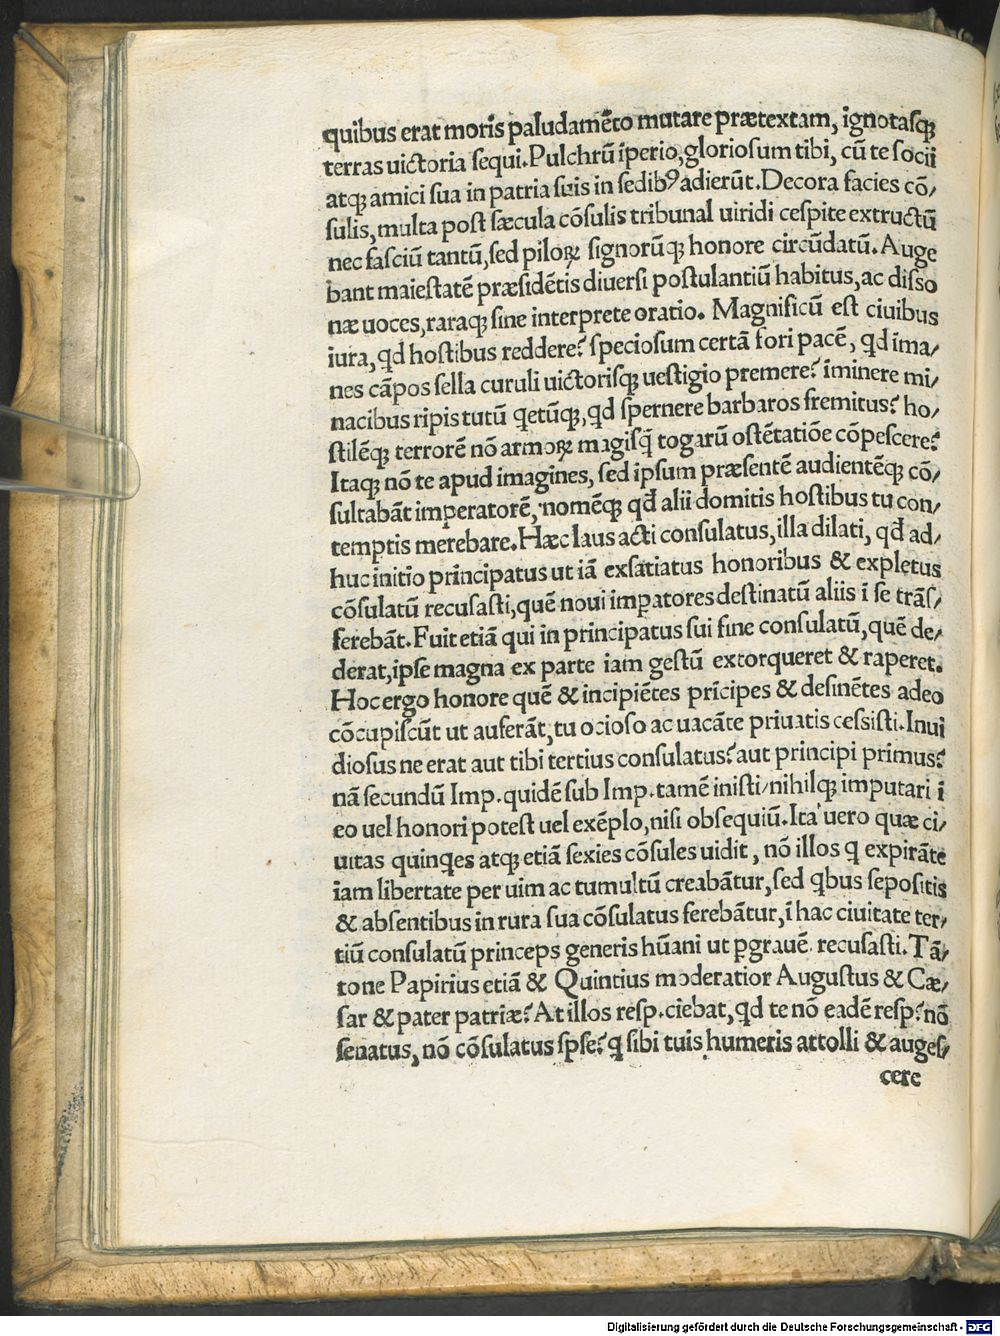 quibus erat moris paludamēto mutare prætextam, ignotasqꝫ
terras uictoria sequi. Pulchrū īperio, gloriosum tibi, cū te socii
atqꝫ amici sua in patria suis in sedibꝰ adierūt. Decora facies cō/
sulis, multa post sæcula cōsulis tribunal uiridi cespite extructū
nec fasciū tantū, sed piloꝝ signorūqꝫ honore circūdatū. Auge
bant maiestatē præsidētis diuersi postulantiū habitus, ac disso
næ uoces, raraqꝫ sine interprete oratio. Magnificū est ciuibus
iura, qd hostibus reddere? speciosum certā fori pacē, qd ima/
nes cāpos sella curuli uictorisqꝫ uestigio premere? īminere mi/
nacibus ripis tutū qetūqꝫ, qd spernere barbaros fremitus? ho/
stilēqꝫ terrorē nō armoꝝ magisq̄ togarū ostētatiōe cōpescere?
Itaqꝫ nō te apud imagines, sed ipsum præsentē audientēqꝫ cō/
sultabāt imperatorē, nomēqꝫ qđ alii domitis hostibus tu con/
temptis merebare. Hæc laus acti consulatus, illa dilati, qđ ad/
huc initio principatus ut iā exsatiatus honoribus & expletus
cōsulatū recusasti, quē noui imꝑatores destinatū aliis ī se trās/
ferebāt. Fuit etiā qui in principatus sui fine consulatū, quē de/
derat, ipse magna ex parte iam gestū extorqueret & raperet.
Hoc ergo honore quē & incipiētes prīcipes & desinētes adeo
cōcupiscūt ut auferāt, tu ocioso ac uacāte priuatis cessisti. Inui
diosus ne erat aut tibi tertius consulatus? aut principi primus?
nā secundū Imp. quidē sub Imp. tamē inisti/ nihilqꝫ imputari ī
eo uel honori potest uel exēplo, nisi obsequiū. Ita uero quæ ci/
uitas quinqes atqꝫ etiā sexies cōsules uidit, nō illos q expirāte
iam libertate per uim ac tumultū creabātur, sed qbus sepositis
& absentibus in rura sua cōsulatus ferebātur, ī hac ciuitate ter/
tiū consulatū princeps generis hūani ut pgrauē recusasti. Tā/
tone Papirius etiā & Quintius moderatior Augustus & Cæ/
sar & pater patriæ? At illos resp. ciebat, qd te nō eadē resp? nō
senatus, nō cōsulatus ipse? q sibi tuis humeris attolli & auges/
cere
Digitalisierung gefördert durch die Deutsche Forschungsgemeinschaft - DFG